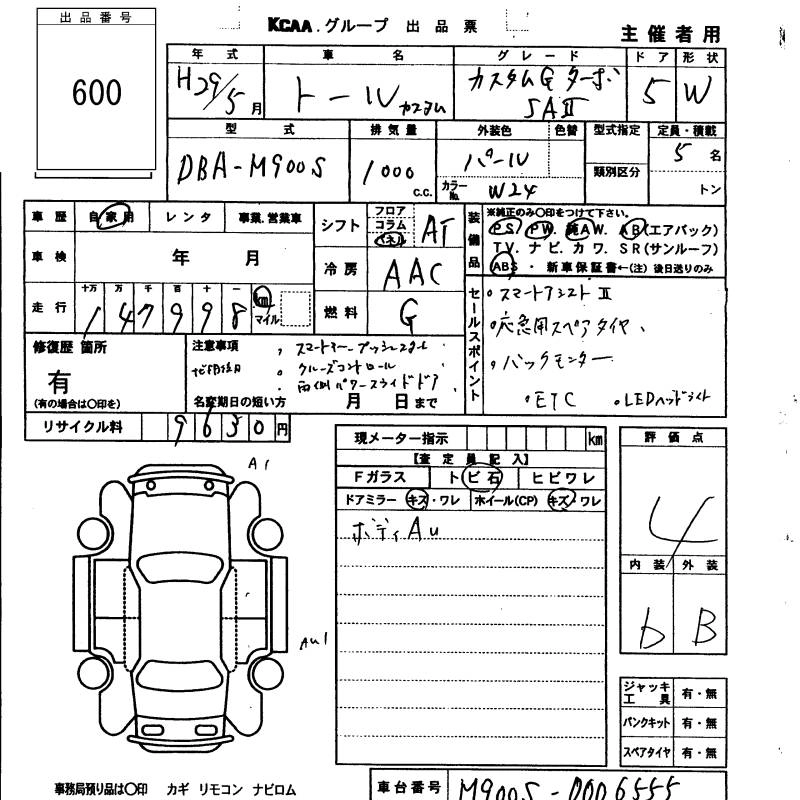 出品番号
600
KCAA.グループ 出品票
主催者用
年式 車名 グレード ドア 形状
H29/5月 トール カスタム カスタムG ターボ SAⅡ 5 W
型式 排気量 外装色 色替 型式指定 定員・積載
DBA-M900S 1000 c.c. パール 類別区分 5名
カラーNo. W24 トン
車歴 自家用 レンタ 事業.営業車
シフト フロア コラム パネル AT
装備品 ※純正のみ〇印をつけて下さい。
PS. PW. 純AW. AB(エアバック)
TV. ナビ. カワ. SR(サンルーフ)
ABS ・ 新車保証書←(注)後日送りのみ
車検 年 月
冷房 AAC
走行 十万 万 千 百 十 一
147998 km マイル
燃料 G
セールスポイント
・スマートアシストⅡ
・応急用スペアタイヤ、
・バックモニター
・ETC ・LEDヘッドライト
修復歴 箇所
有
(有の場合は〇印を)
注意事項
・クルーズコントロール
・両側パワースライドドア
名変期日の短い方 月 日まで
リサイクル料 9630円
現メーター指示 km
【査定員記入】
Fガラス トビ石 ヒビワレ
ドアミラー キズ・ワレ ホイール(CP) キズ・ワレ
ボディAu
評価点
4
内装 外装
b B
A1
Au1
ジャッキ工具 有・無
パンクキット 有・無
スペアタイヤ 有・無
事務局預り品は〇印 カギ リモコン ナビロム
車台番号 M900S-0006555